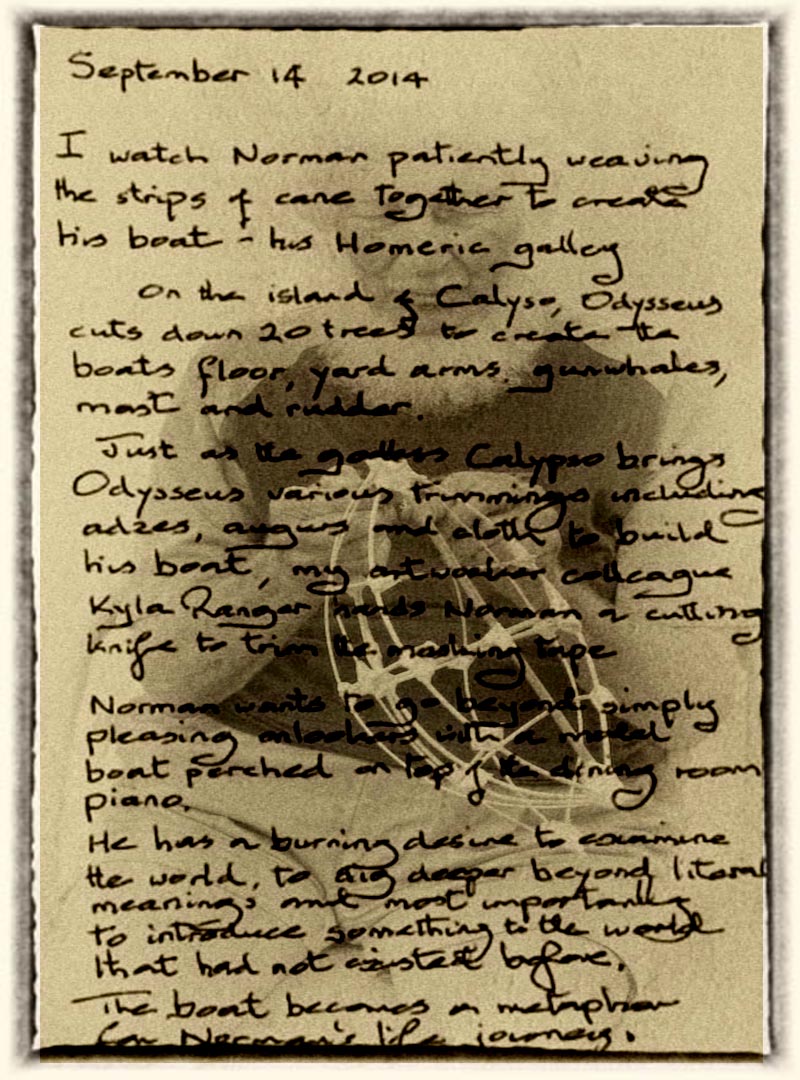 September 14 2014
I watch Norman patiently weaving
the strips of cane together to create
his boat - his Homeric galley
On the island of Calyso, Odysseus
cuts down 20 trees to create the
boats floor, yard arms, gunwhales,
mast and rudder.
Just as the goddess Calypso brings
Odysseus various trimmings including
adzes, augurs and cloth to build
his boat, my artworker colleague
Kyla Ranger hands Norman a cutting
knife to trim the masking tape
Norman wants to go beyond simply
pleasing onlookers with a model
boat perched on top of the dining room
piano.
He has a burning desire to examine
the world, to dig deeper beyond literal
meanings and most importantly
to introduce something to the world
that had not existed before.
The boat becomes a metaphor
for Norman's life journey.